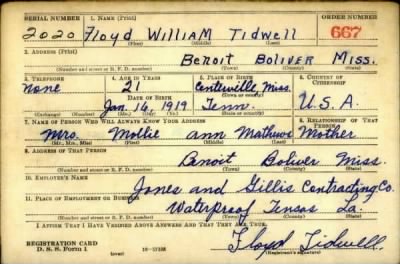 SERIAL NUMBER 1. NAME (Print) ORDER NUMBER
2020 Floyd William Tidwell 667
(First) (Middle) (Last)
2. ADDRESS (Print)
Benoit Boliver Miss.
(Number and street or R. F. D. number) (Town) (County) (State)
3. TELEPHONE 4. AGE IN YEARS 5. PLACE OF BIRTH 6. COUNTRY OF CITIZENSHIP
None 21 Centerville, Miss.
DATE OF BIRTH (Town or county)
Jan. 16, 1919 Tenn. U.S.A.
(Exchange) (Number) (Mo.) (Day) (Yr.) (State or country)
7. NAME OF PERSON WHO WILL ALWAYS KNOW YOUR ADDRESS 8. RELATIONSHIP OF THAT PERSON
Mrs. Mollie ann Mathews Mother
(Mr., Mrs., Miss) (First) (Middle) (Last)
9. ADDRESS OF THAT PERSON
Benoit Boliver Miss.
(Number and street or R. F. D. number) (Town) (County) (State)
10. EMPLOYER'S NAME
Jones and Gillis Contracting Co.
11. PLACE OF EMPLOYMENT OR BUSINESS
Waterproof Tensas La.
(Number and street or R. F. D. number) (Town) (County) (State)
I AFFIRM THAT I HAVE VERIFIED ABOVE ANSWERS AND THAT THEY ARE TRUE.
Floyd Tidwell
REGISTRATION CARD
D. S. S. Form 1 (over) (Registrant's signature)